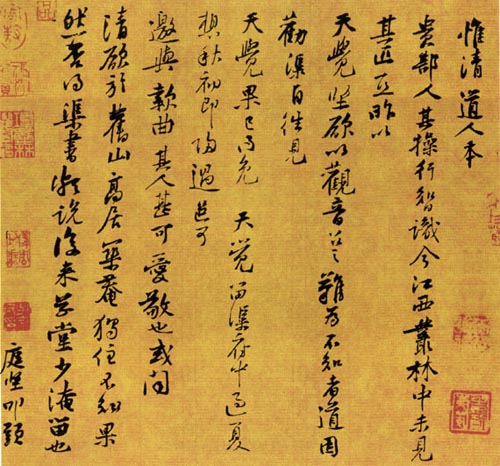 惟清道人本
貴部人其操行智識今江西叢林中未見
其匹亞昨以
天覺堅欲以觀音召之難為不知者道因
勸渠自往見
天覺果已得免 天覺留渠府中過夏
想秋初即歸過邑可
邀與款曲其人甚可愛敬也或聞
清欲於舊山高居築菴獨住不知果
然否得渠書頗說後來草堂少淹留也
庭堅叩頭